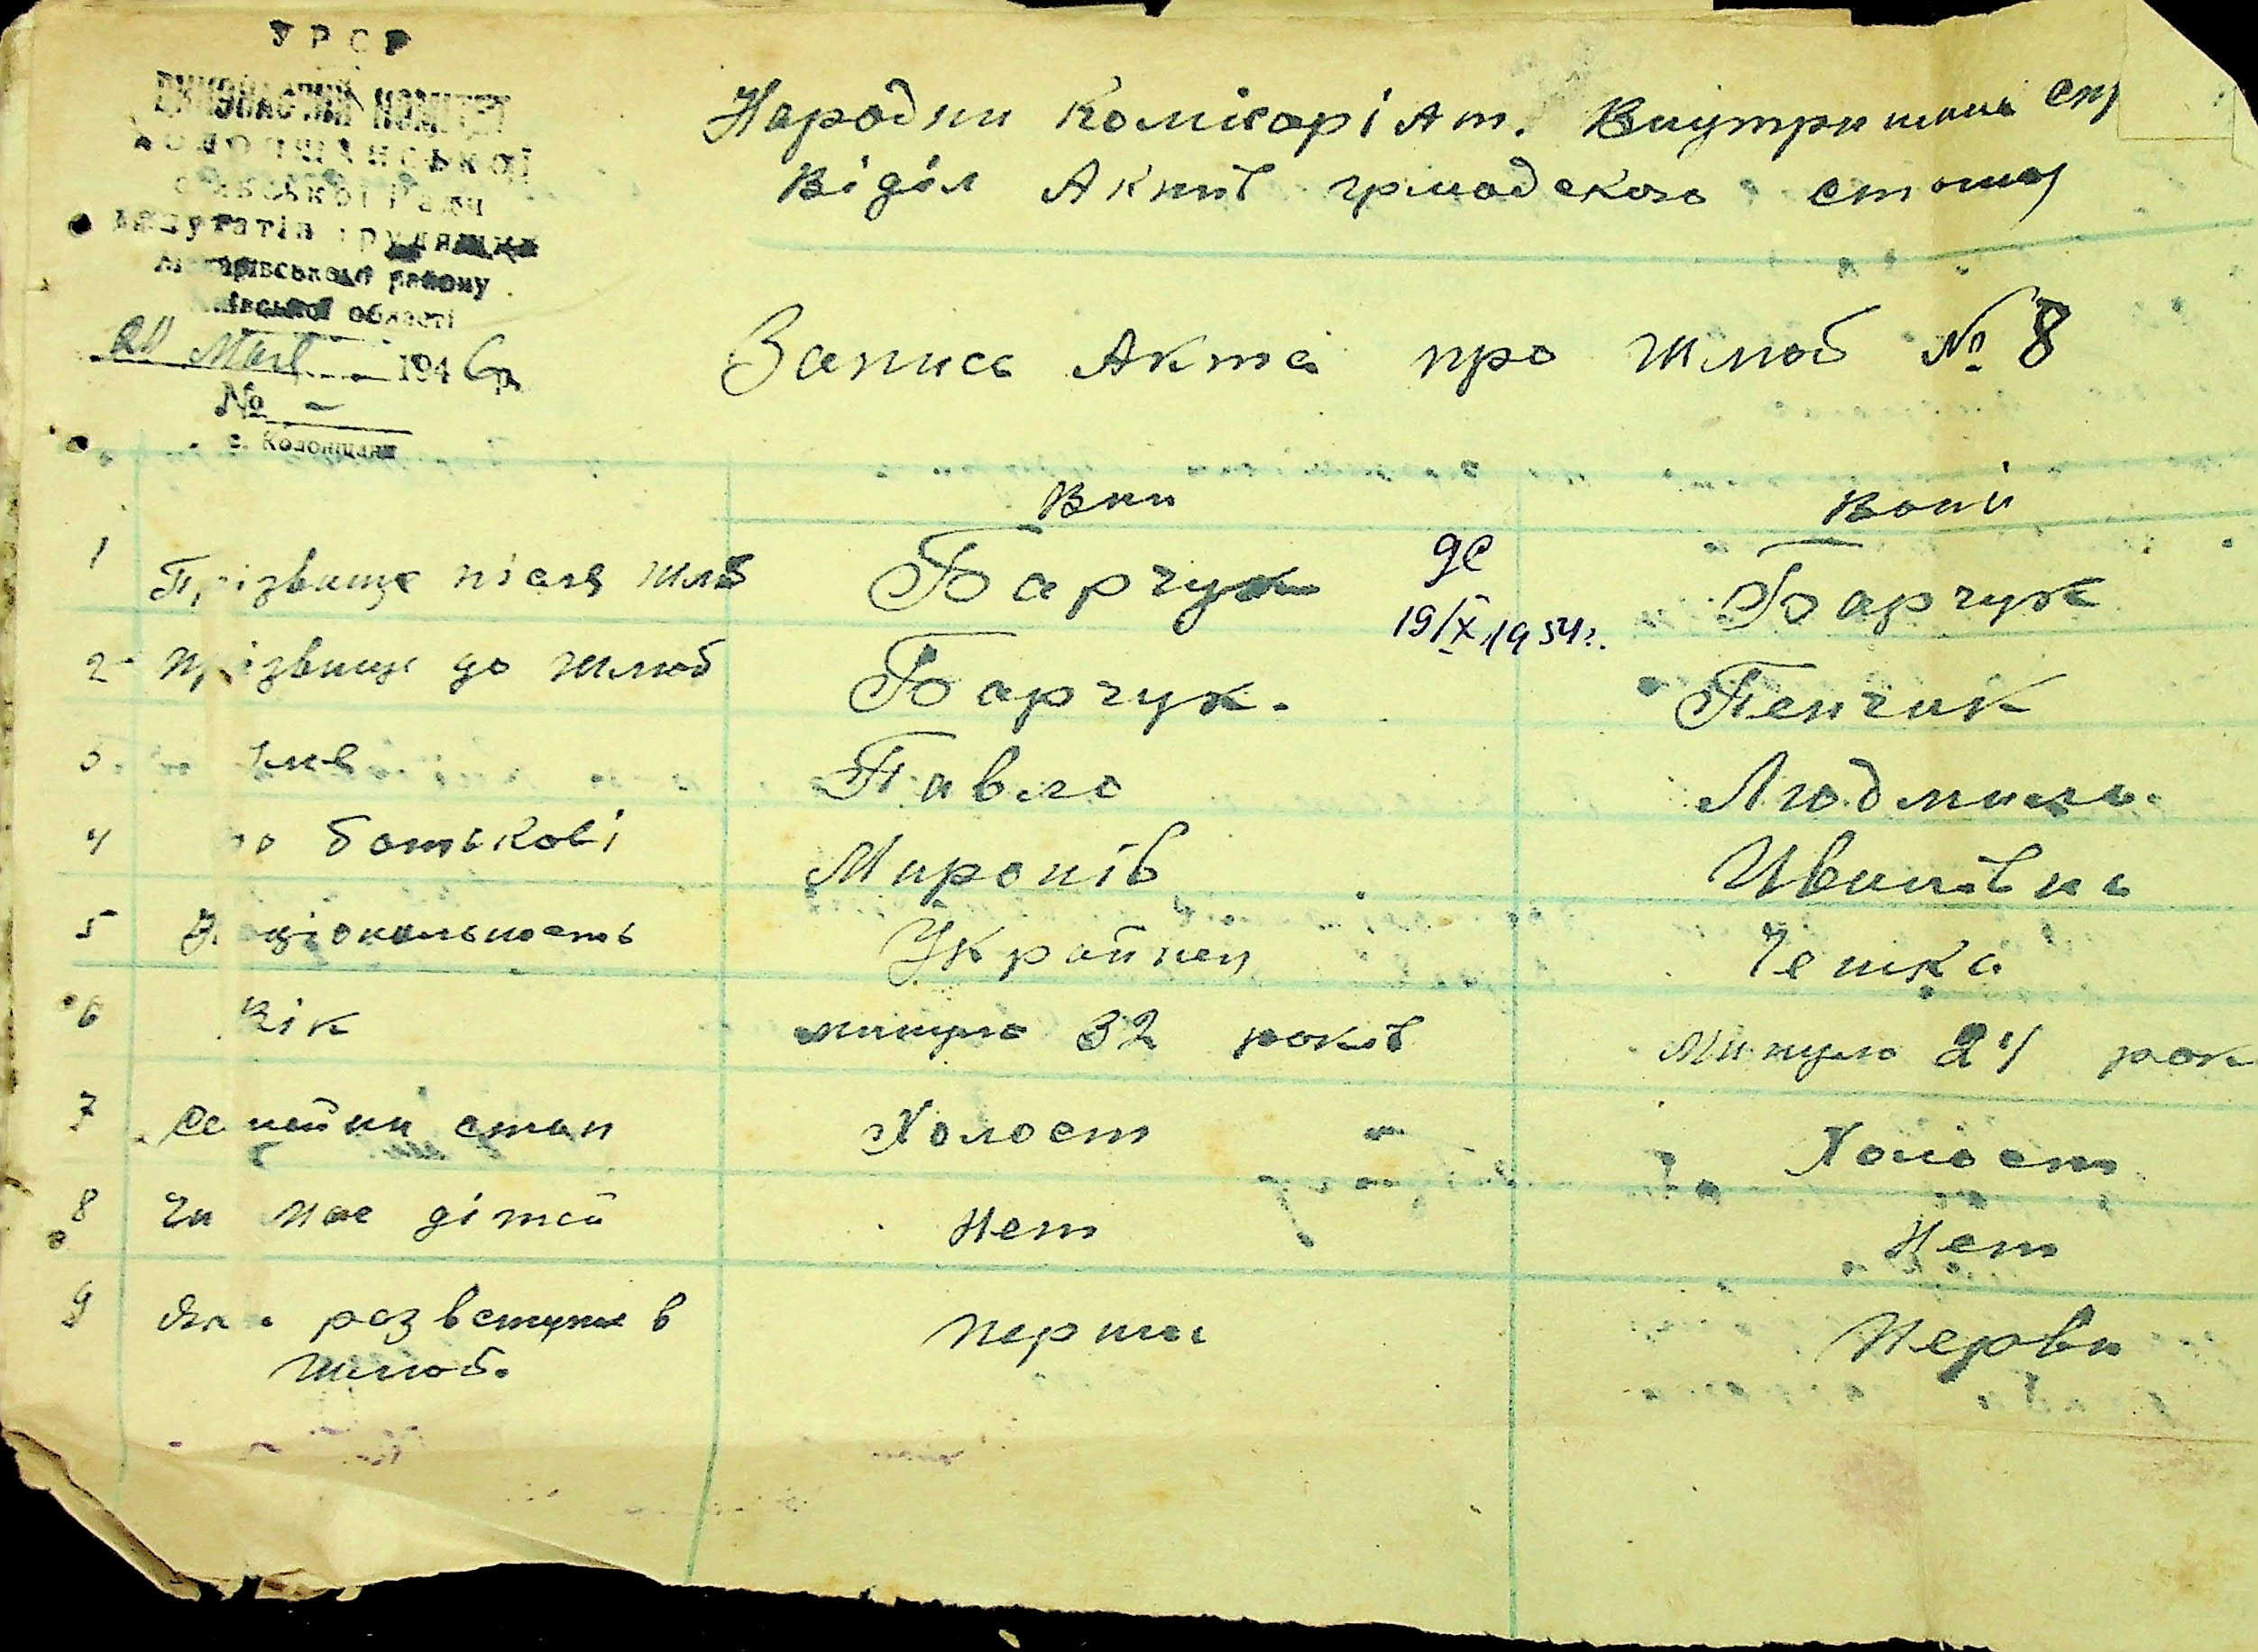 УРСР
ВИКОНАВЧИЙ КОМІТЕТ
КОЛОНЩИНСЬКОЇ
сільської Ради
депутатів трудящих
Макарівського району
Київської області
194 6р
№ -
с. Колонщина
Народни Комісаріат. Внутришних
Віділ Актів
Запись Акта про шлюб № 8
Вин Вона
1 Прізвище після шлб Барчук де Барчук
19/IX 1954г.
2 Прізвище до шлюб Барчук. Пенчик
3. Имя Павло Людмила
4 по батькові Миронів Иванівна
5 Національность Украйнец Чешка
6 Вік минуло 32 років Минуло 24 рок
7 Семейни стан Холост Холост
8 Чи мае дітей Нет Нет
9 раз вступив в перши Перви
шлюб.